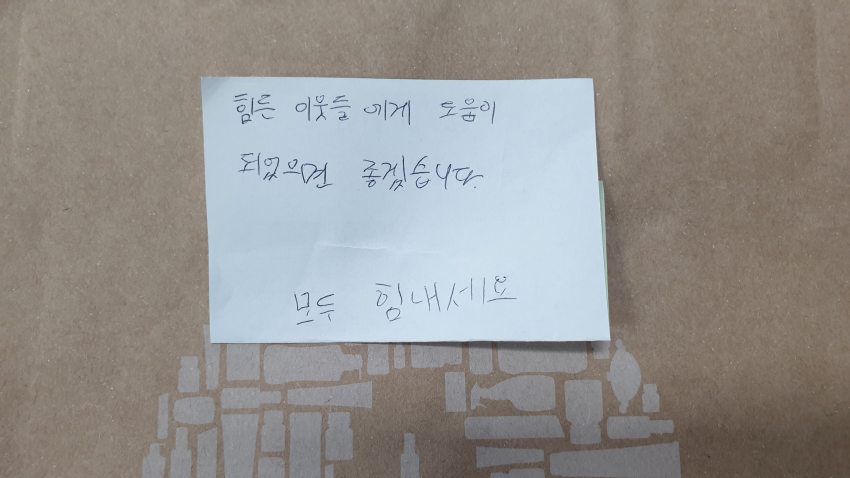 힘든 이웃들 에게 도움이
되었으면 좋겠습니다.
모두 힘내세요